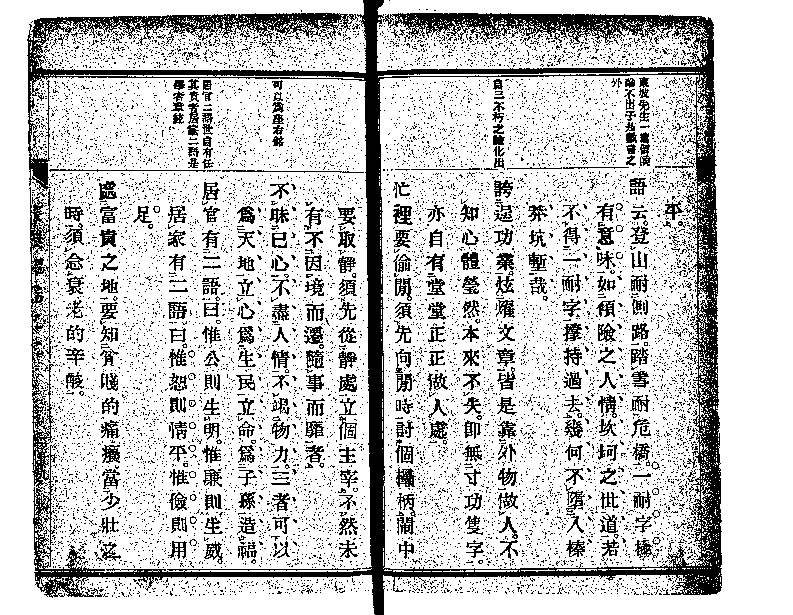 東坡先生一蓑煙雨
論不出于
外
自三不朽之論化出
可以爲座右銘
居官二語世自有任
其責者居家二語是
學者章銘
平。
語云登山耐側路。踏雪耐危橋。一耐字極
有意味。如傾險之人情坎坷之世道若
不得一耐字撑持過去。幾何不墮入榛
莽坑塹哉。
誇逞功業。炫耀文章。皆是靠外物做人。不
知心體瑩然本來不失。卽無寸功隻字。
亦自有堂堂正正做人處。
忙裡要偷閒。須先向閒時討個欛柄。鬧中
要取靜。須先從靜處立個主宰。不然未
有不因境而遷。隨事而靡者。
不昧己心。不盡人情。不竭物力。三者可以
爲天地立心爲生民立命。爲子孫造福。
居官有二語。曰惟公則生明。惟廉則生威。
居家有二語曰惟恕則情平。惟儉則用
足。
處富貴之地。要知貧賤的痛癢當少壯之
時。須念衰老的辛酸。